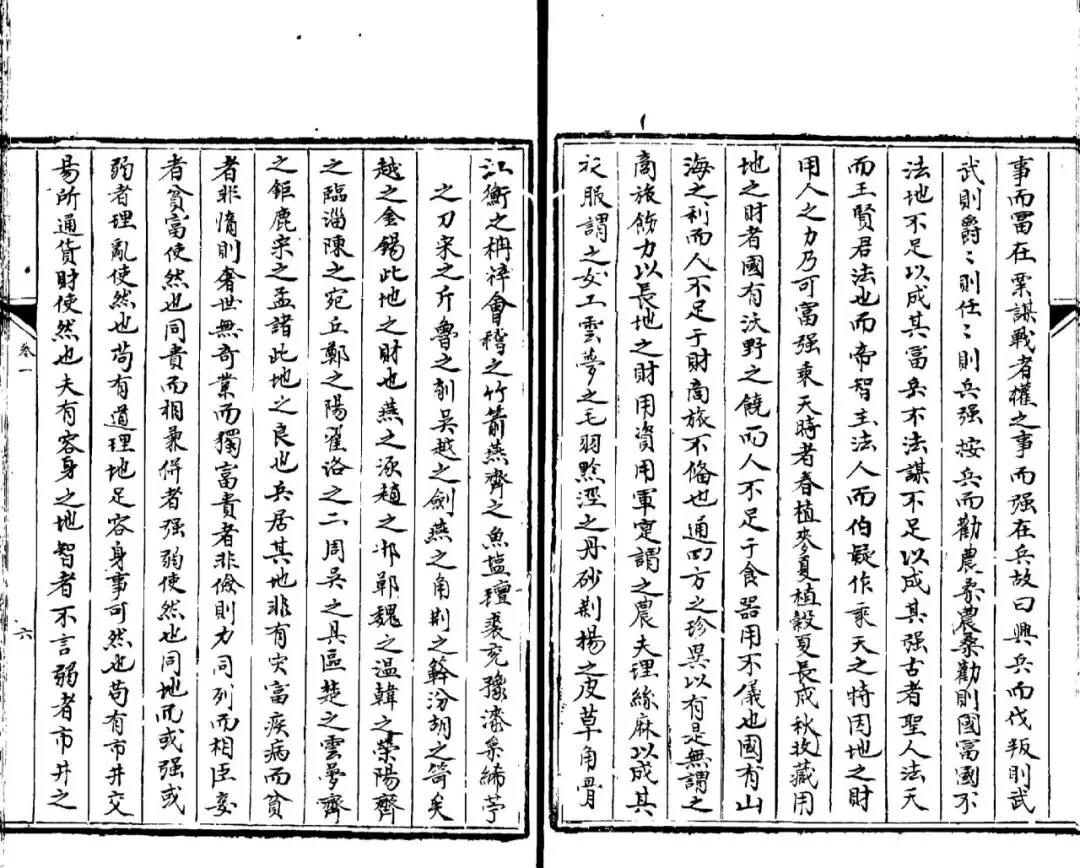 事而富在粟謀戰者權之事而强在兵故曰興兵而伐叛則武
武則爵〻則任〻則兵强按兵而勸農桑農桑勸則國富國不
法地不足以成其富兵不法謀不足以成其强古者聖人法天
而王賢君法也而帝智主法人而伯疑作乘天之特因地之財
用人之力乃可富强乘天時者春植麥夏植穀夏長成秋收藏用
地之財者國有沃野之饒而人不足于食器用不儀也國有山
海之利而人不足于財商旅不偹也通四方之珍異以有是無謂之
商旅飭力以長地之財用資用軍寔謂之農夫理絲麻以成其
衣服謂之女工雲夢之毛羽黔溼之丹砂荆揚之皮革角骨
江衡之柟梓會稽之竹箭燕齊之魚塩亶裘兖豫漆枲絺苧
之刀宋之斤魯之削吳越之劍燕之角荆之榦汾胡之笴矣
越之金錫此地之財也燕之涿趙之邯鄲魏之温韓之滎陽齊
之臨淄陳之宛丘鄭之陽翟洛之二周吳之具區楚之雲夢齊
之鉅鹿宋之孟諸此地之良也兵居其地非有灾富疾病而貧
者非惰則奢世無奇業而獨富貴者非儉則力同列而相臣妾
者貧富使然也同貴而相兼併者强弱使然也同地而或强或
弱者理亂使然也苟有道理地足容身事可然也苟有市井交
易所通貨財使然也夫有容身之地智者不言弱者市井之
卷一
六